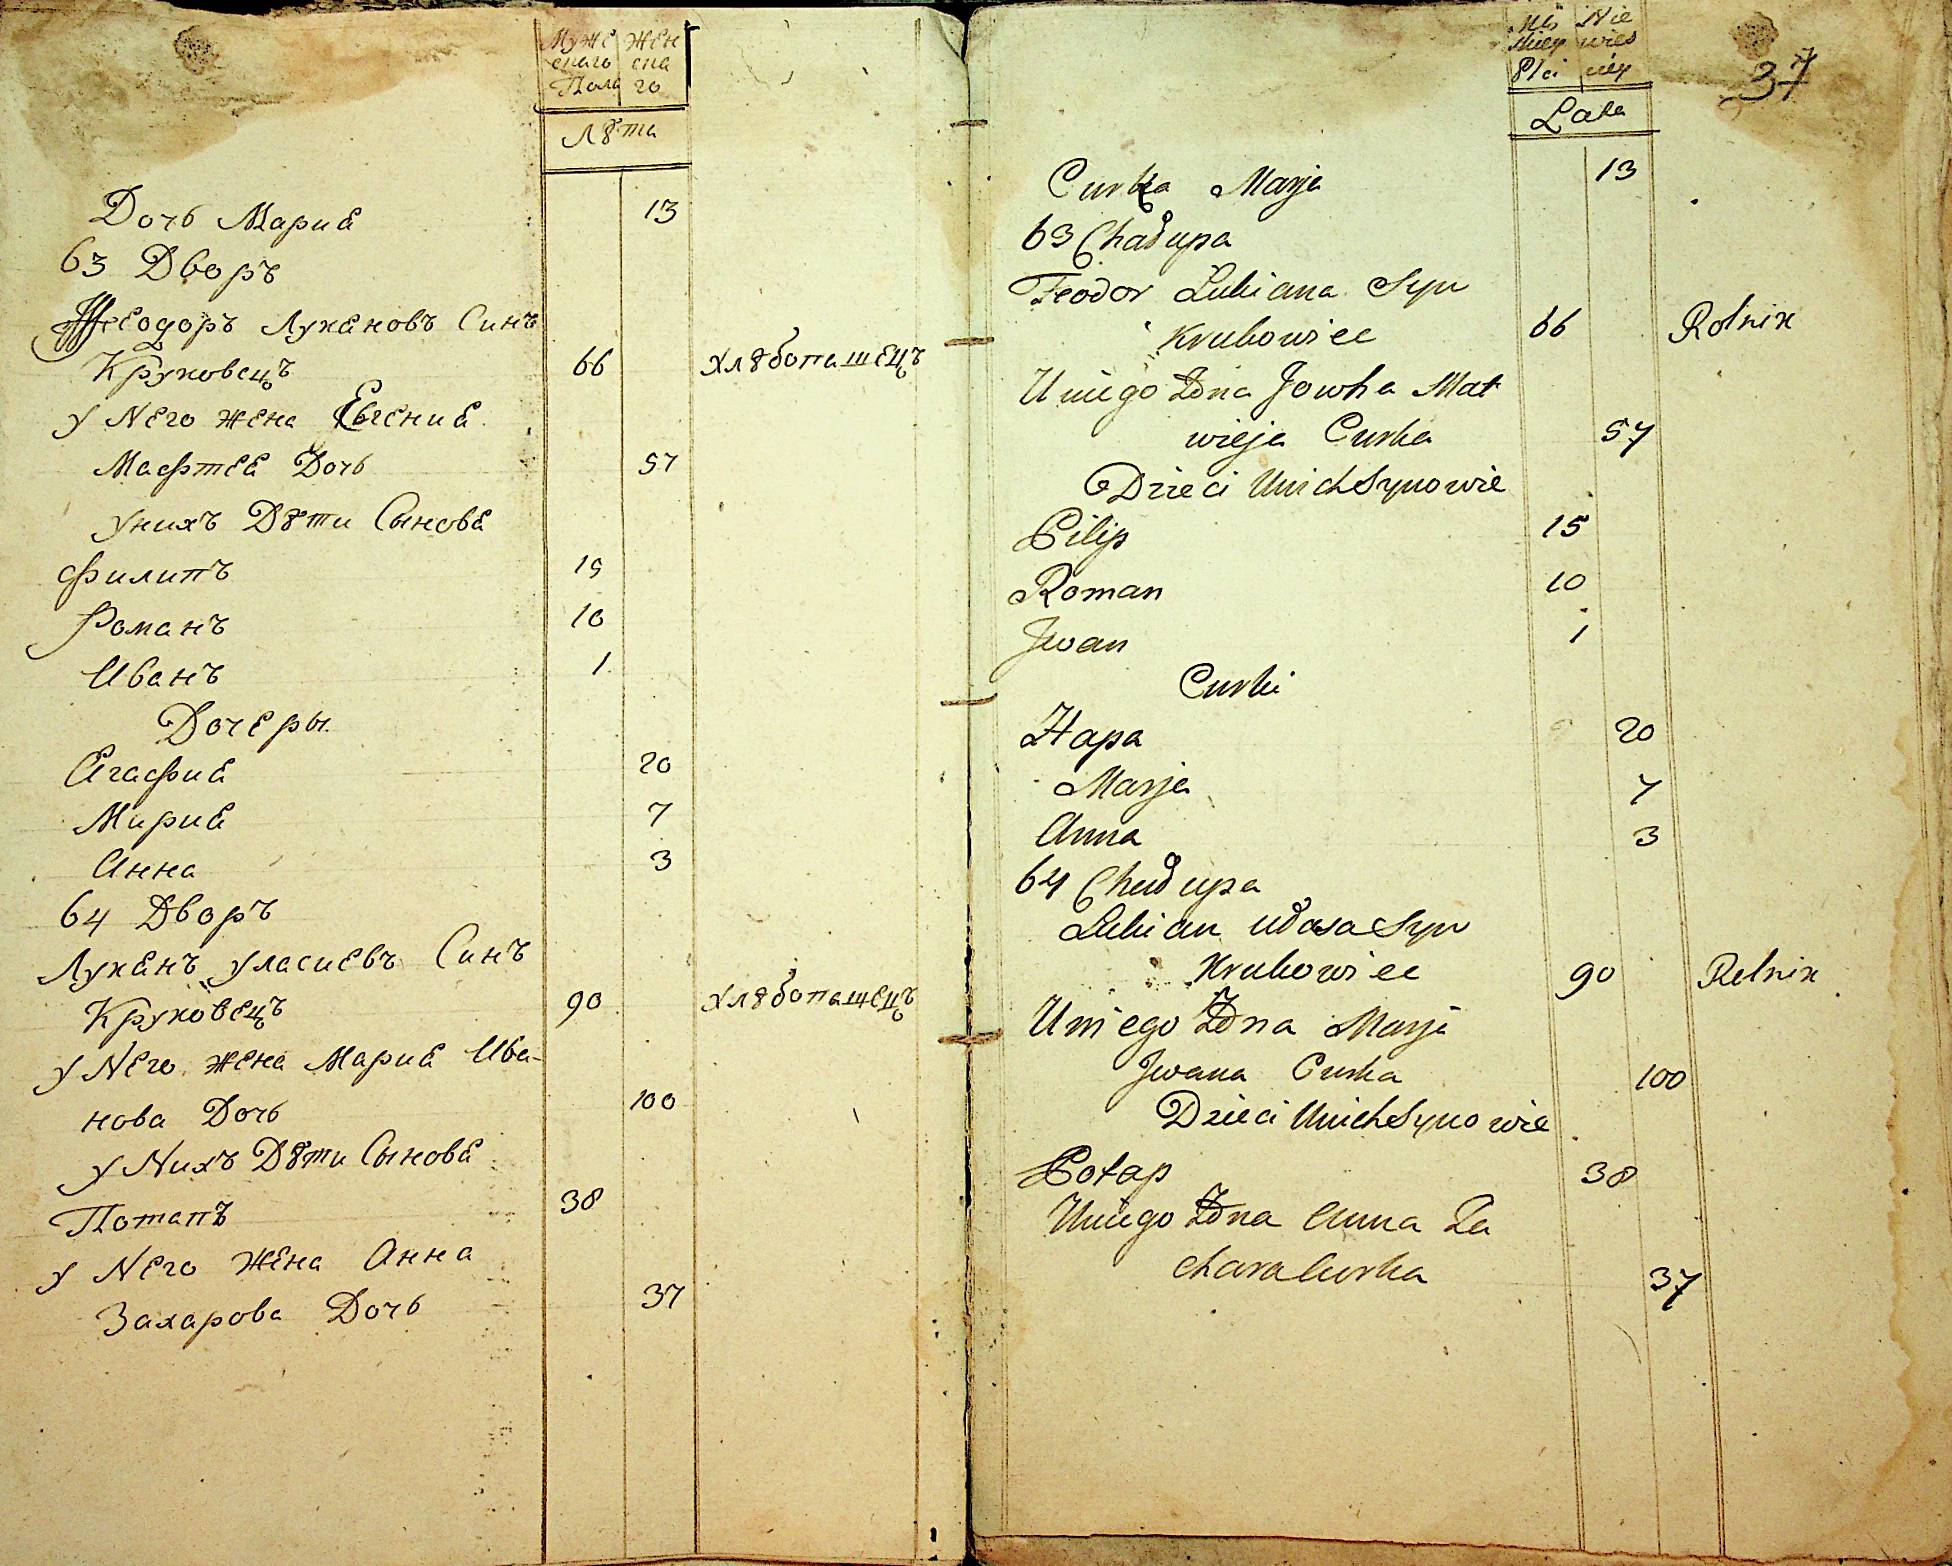 Муже Жен
скаго ска
Пола го
Лѣта
Дочь Мариа 13
63 Дворъ
Феодоръ Лукановъ Синъ
Круковецъ 66 хлѣбопашецъ
у Него жена Евгениа
Мафтеа Дочь 57
унихъ Дѣти Сынова
Филипъ 15
Романъ 10
Иванъ 1
Дочеры
Агафиа 20
Мариа 7
Анна 3
64 Дворъ
Луканъ уласиевъ Синъ
Круковецъ 90 хлѣбопащецъ
у Него жена Мариа Ива-
нова Дочь 100
у Нихъ Дѣти Сынова
Потапъ 38
у Него Жена Анна
Захарова Дочь 37
37
Męz Nie
skiey wies
Płci ciey
Lata
Curka Marja 13
63 Chałupa
Feodor Łukiana Syn
Krukowiec 66 Rolnik
Uniego Żona Jowha Mat
wieja Curka 57
Dzieci Unich Synowie
Pilip 15
Roman 10
Jwan 1
Curki
Hapa 20
Marja 7
Anna 3
64 Chałupa
Łukian Ułasa Syn
Krukowiec 90 Rolnik
Uniego Żona Marja
Jwana Curka 100
Dzieci Unich Synowie
Potap 38
Uniego Żona Anna Za
chara Curka 37